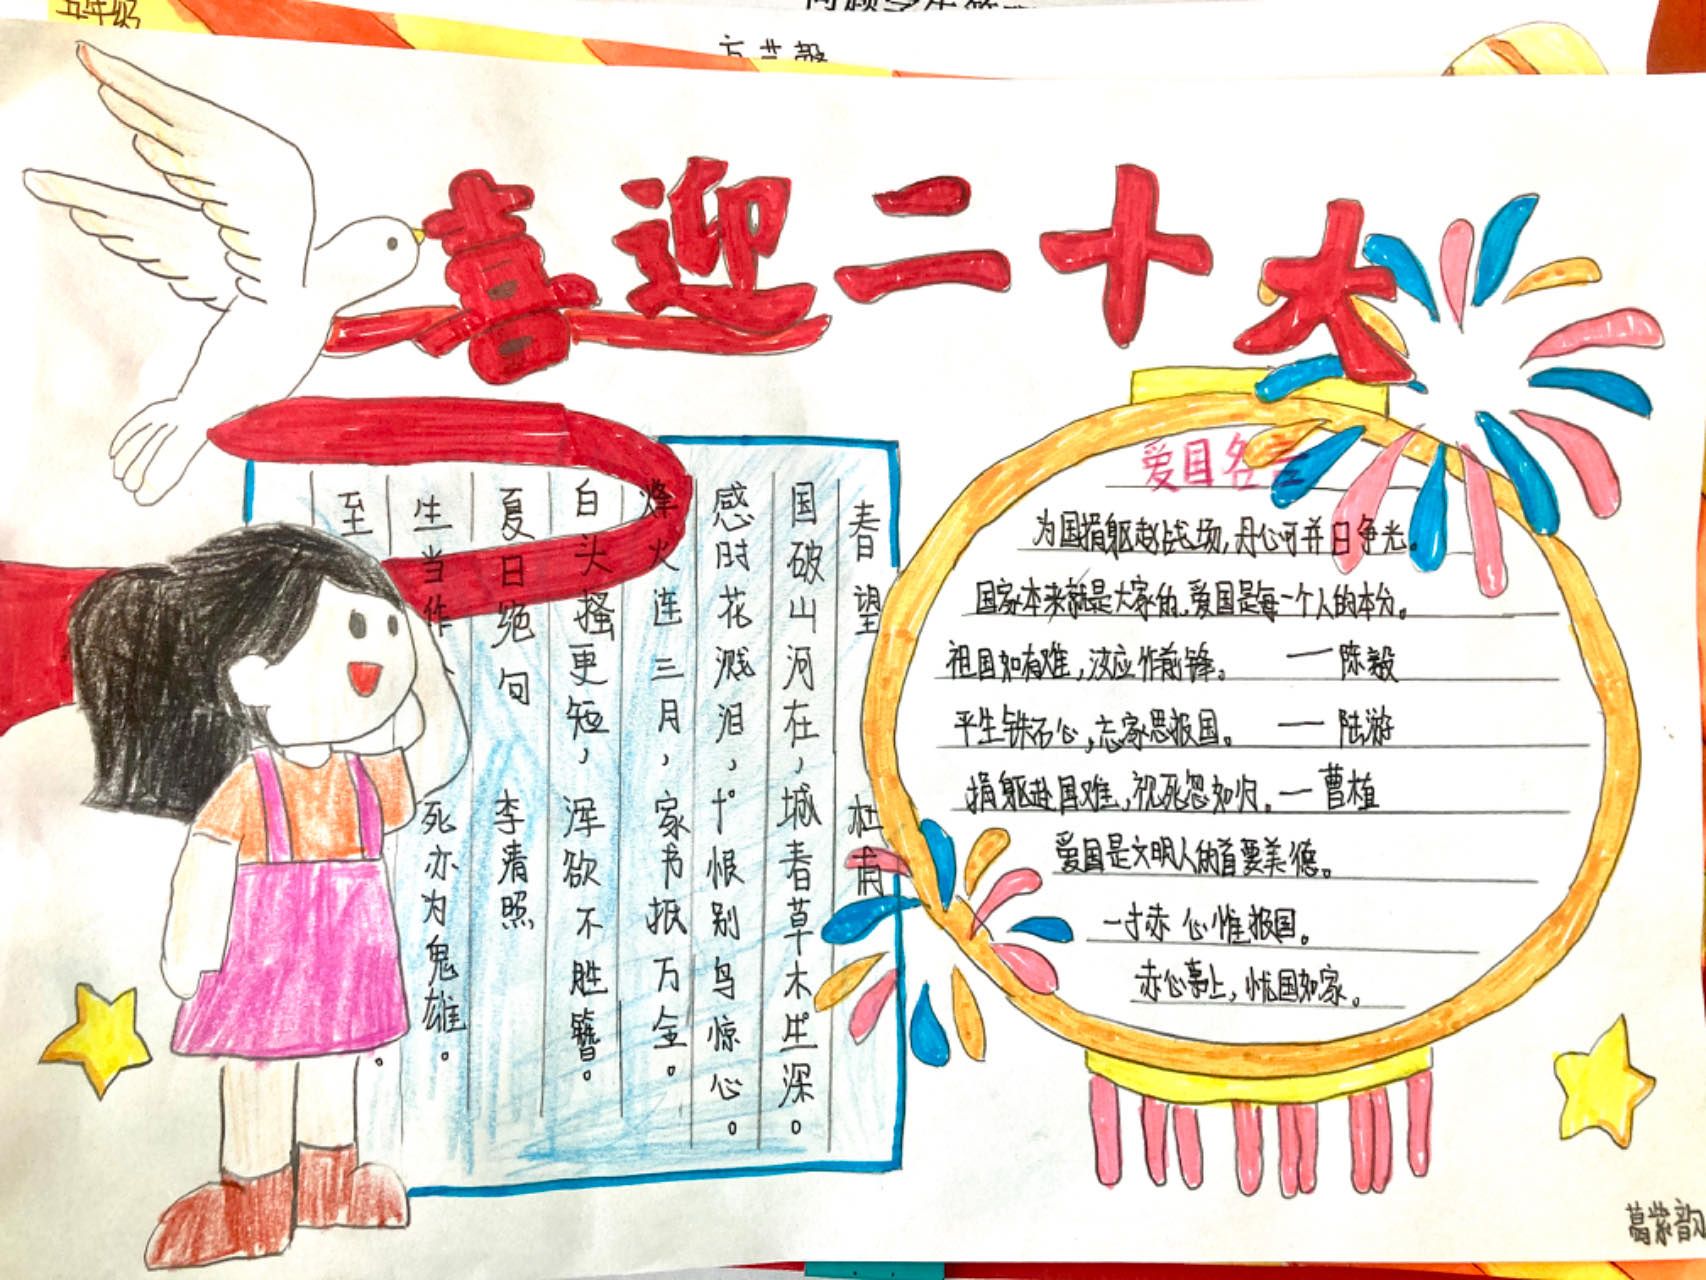 五年级
喜迎二十大
春望 杜甫
国破山河在，城春草木生深。
感时花溅泪，恨别鸟惊心。
烽火连三月，家书抵万金。
白头搔更短，浑欲不胜簪。
夏日绝句 李清照
生当作 死亦为鬼雄。
至 。
爱国名言
为国捐躯赴战场，丹心可并日争光。
国家本来就是大家的，爱国是每一个人的本分。
祖国如有难，汝应作前锋。 ——陈毅
平生铁石心，忘家思报国。 ——陆游
捐躯赴国难，视死忽如归。—曹植
爱国是文明人的首要美德。
一寸赤心惟报国。
赤心事上，忧国如家。
葛紫韵